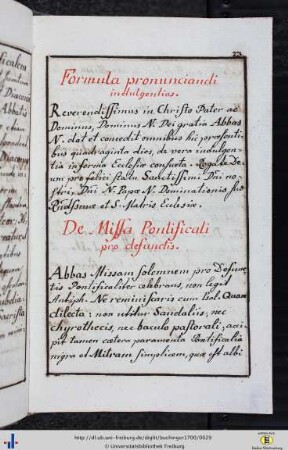 23
Formula pronunciandi
indulgentias.
Reverendissimus in Christo Pater ac
Dominus, Dominus N. Dei gratia Abbas
N. dat et concedit omnibus hic praesenti-
bus quadraginta dies, de vera indulgen-
tia in forma Ecclesiae consueta. Rogate De-
um pro felici statu Sanctissimi Dni no-
stri, Dni N. Papae N. Dominationis suae
Rndissimae et S. Matris Ecclesiae.
De Missa Pontificali
pro defunctis.
Abbas Missam solemnem pro Defunc-
tis Pontificaliter celebrans, non legit
Antiph. Ne reminiscaris cum Psal. Quam
dilecta: non utitur Sandaliis, nec
chyrothecis, nec baculo pastorali, acci-
pit tamen caetera paramenta Pontificalia
nigra et Mitram simplicem, quae est albi
http://dl.ub.uni-freiburg.de/diglit/buchinger1700/0029
© Universitätsbibliothek Freiburg